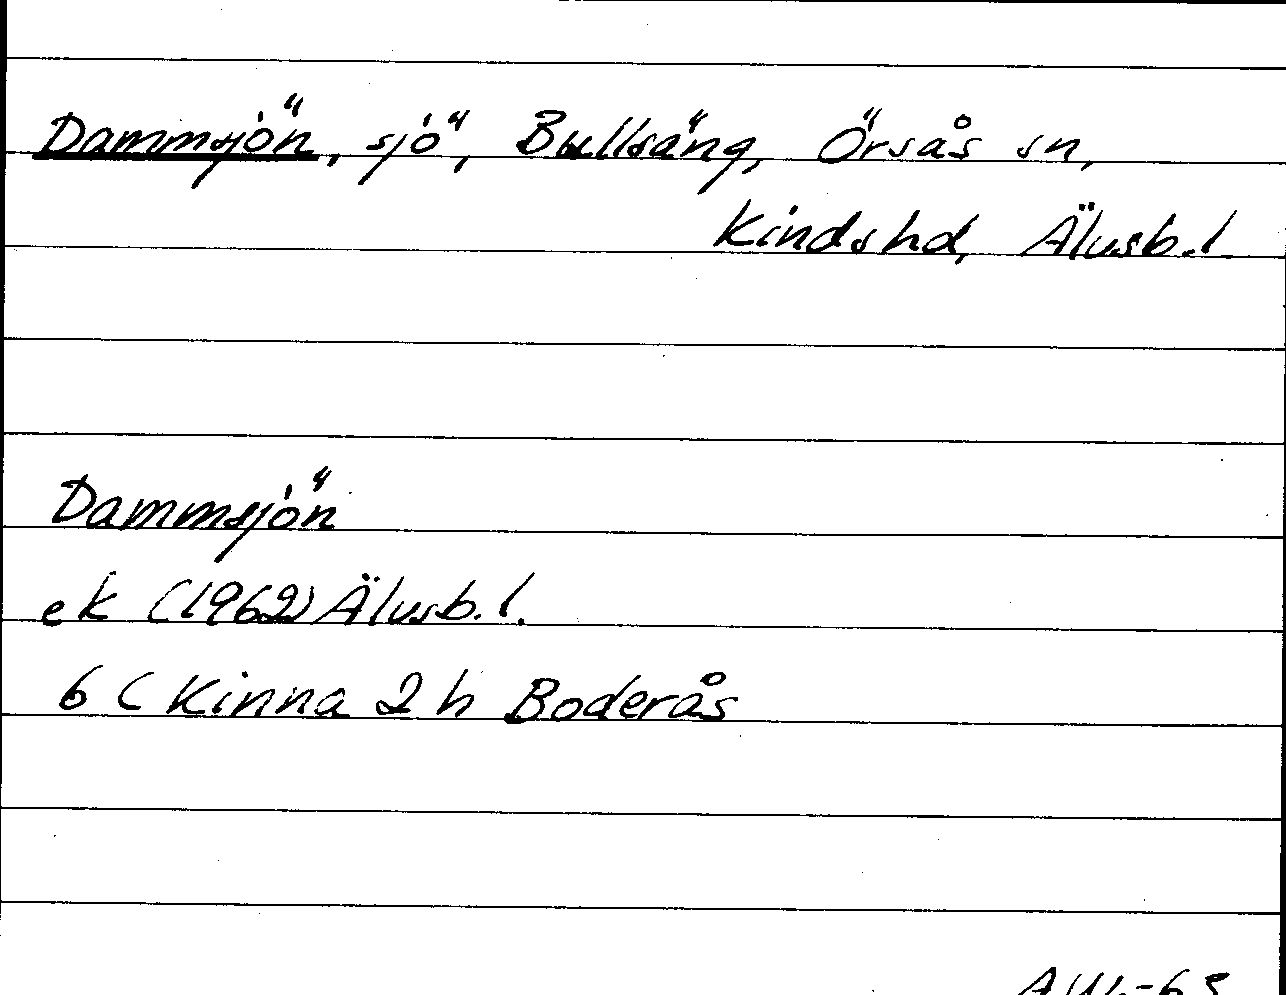 Dammsjön, sjö, Bullsäng, Örsås sn,
Kinds hd, Älvsb. l
Dammsjön
ek (1962) Älvsb. l.
6 C Kinna 2 h Boderås